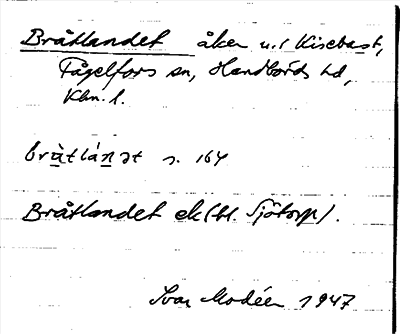 Bråtlandet åker u. Kisebast,
Fågelfors sn, Handbörds hd,
Klm. l.
bråtlánət s. 164
Bråtlandet ek (bl. Sjötorp).
Ivar Modéer 1947